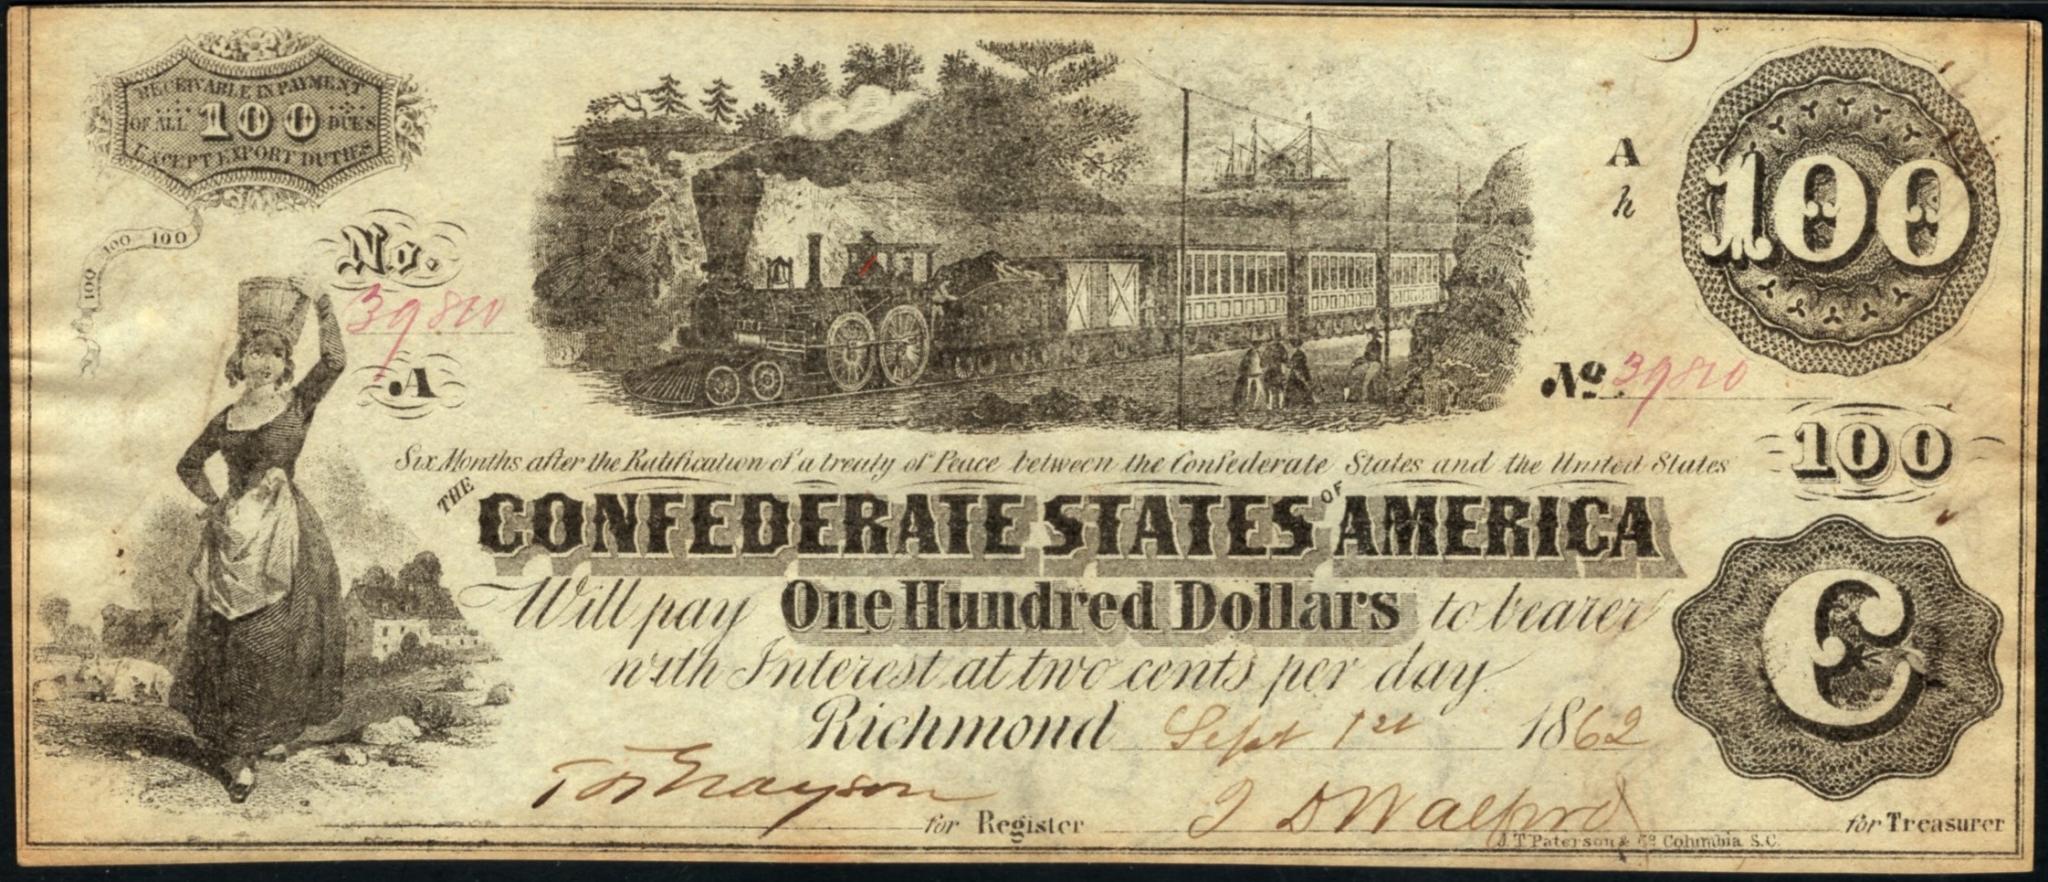 RECEIVABLE IN PAYMENT
OF ALL 100 DUES
EXCEPT EXPORT DUTIES
100 100 100
No.
39810
A
A
h
100
No 39810
100
Six Months after the Ratification of a treaty of Peace between the Confederate States and the United States
THE CONFEDERATE STATES OF AMERICA
Will pay One Hundred Dollars to bearer
with Interest at two cents per day.
Richmond Sept 1st 1862
C
Grayson for Register
J D Walford for Treasurer
J. T. Paterson & Co Columbia S.C.